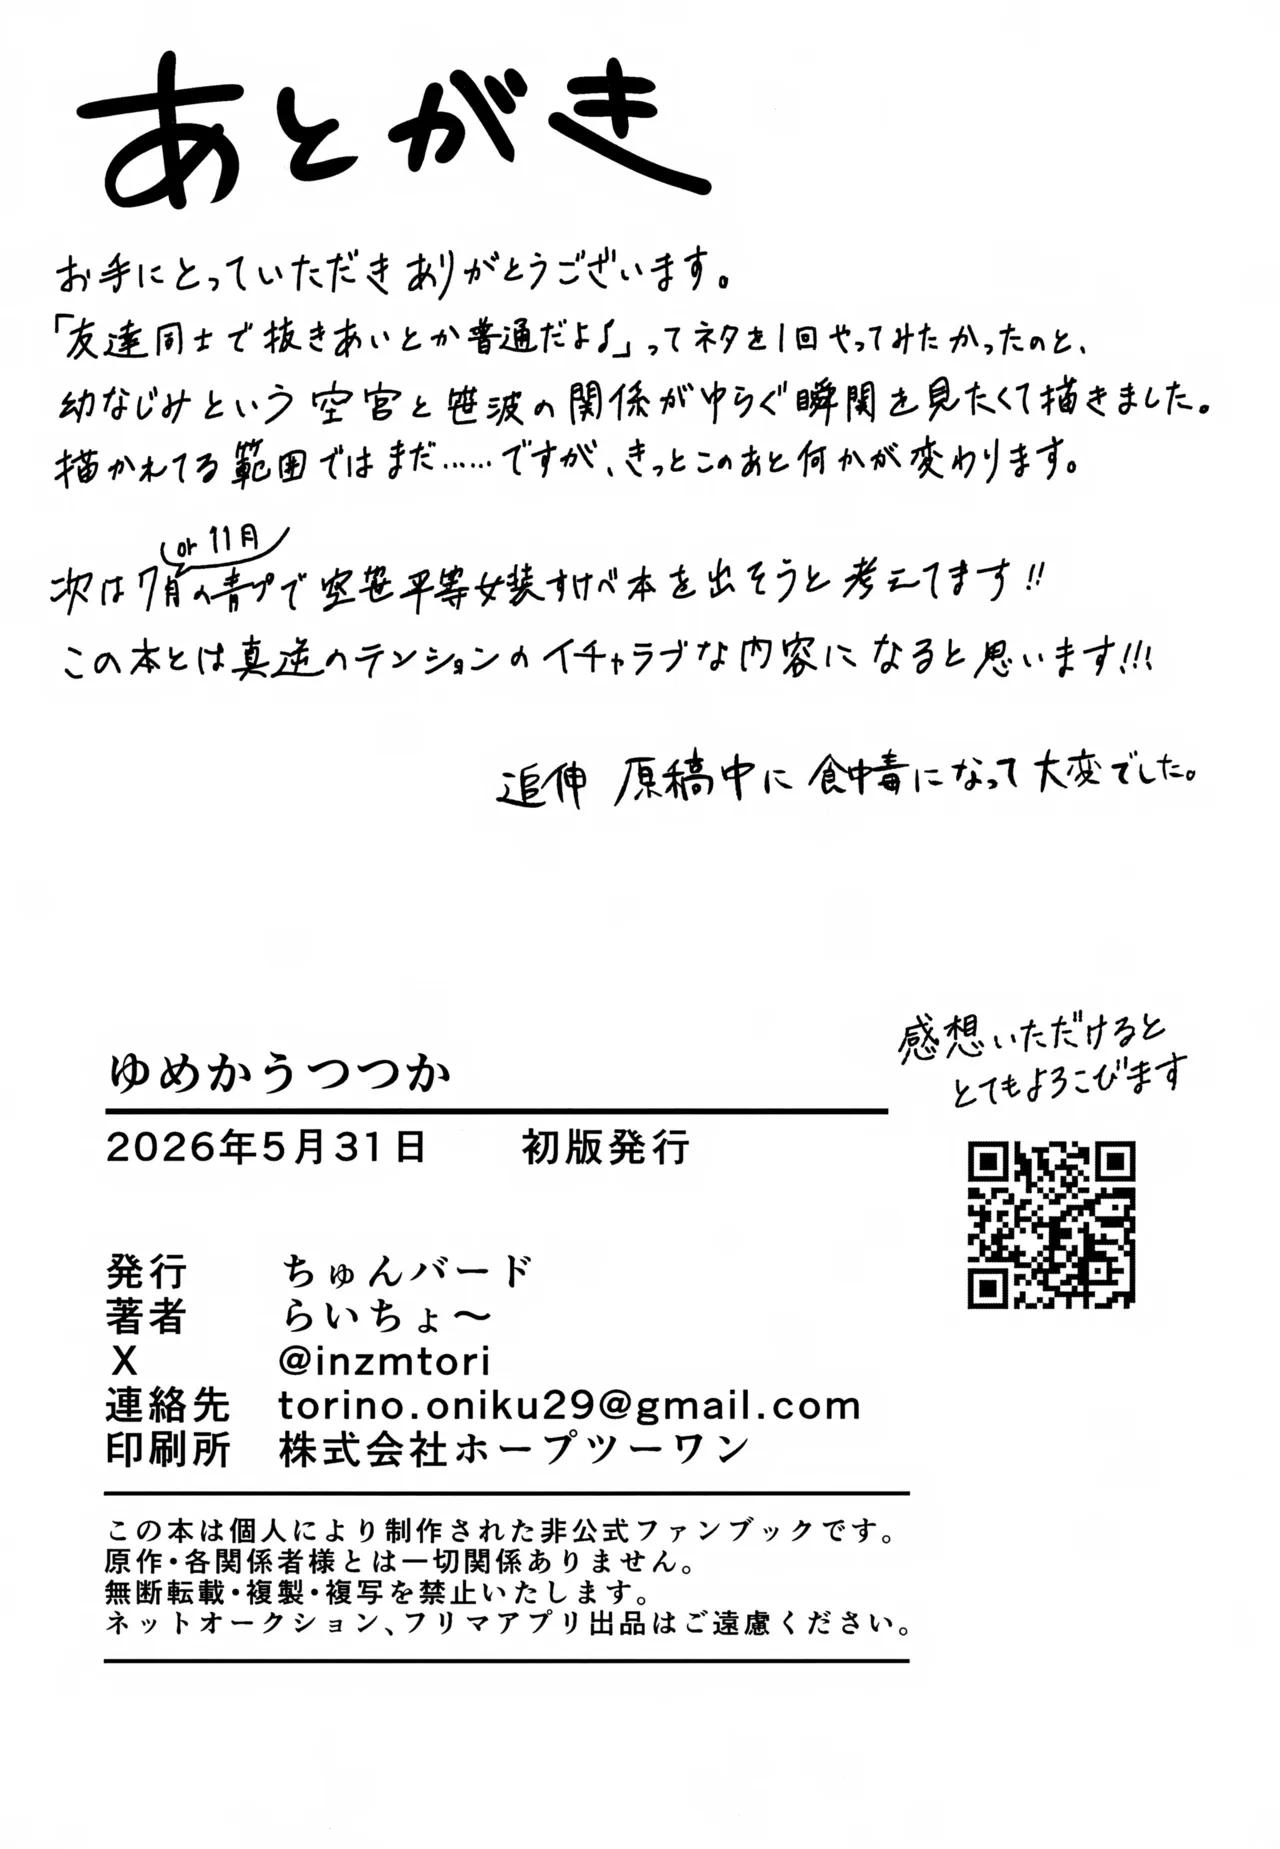 あとがき
お手にとっていただきありがとうございます。
「友達同士で抜きあいとか普通だよ♪」ってネタを1回やってみたかったのと、
幼なじみという空宮と笹波の関係がゆらぐ瞬間を見たくて描きました。
描かれてる範囲ではまだ……ですが、きっとこのあと何かが変わります。
or 11月
次は7月の青ブで空笹平等女装すけべ本を出そうと考えてます!!
この本とは真逆のテンションのイチャラブな内容になると思います!!!
追伸 原稿中に食中毒になって大変でした。
感想いただけると
とてもよろこびます
ゆめかうつつか
2026年5月31日 初版発行
発行 ちゅんバード
著者 らいちょ〜
X @inzmtori
連絡先 torino.oniku29@gmail.com
印刷所 株式会社ホープツーワン
この本は個人により制作された非公式ファンブックです。
原作・各関係者様とは一切関係ありません。
無断転載・複製・複写を禁止いたします。
ネットオークション、フリマアプリ出品はご遠慮ください。